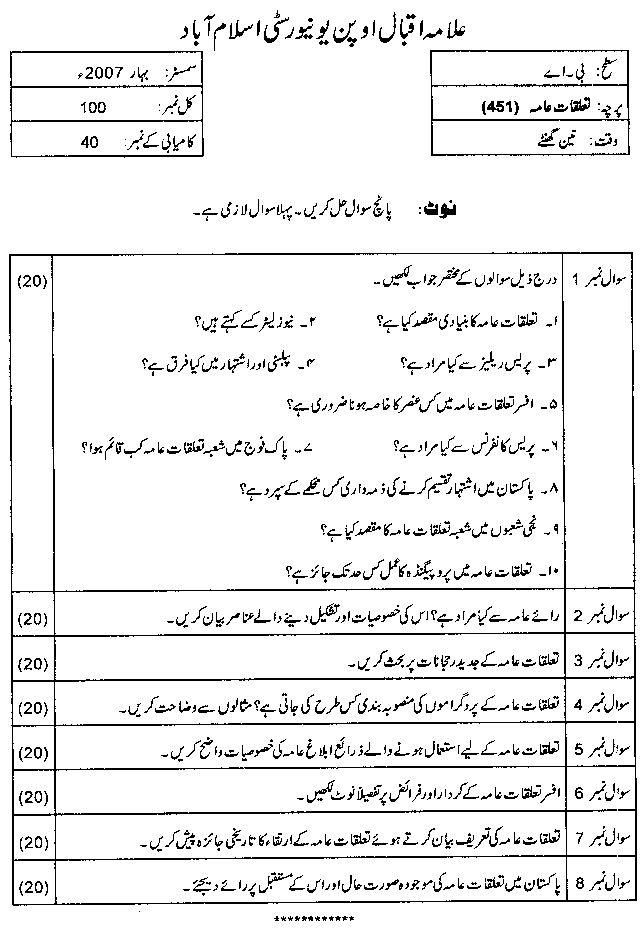 علامہ اقبال اوپن یونیورسٹی اسلام آباد
سطح: بی۔اے
سمسٹر: بہار 2007ء
پرچہ: تعلقات عامہ (451)
کل نمبر: 100
وقت: تین گھنٹے
کامیابی کے نمبر: 40
نوٹ: پانچ سوال حل کریں۔ پہلا سوال لازمی ہے۔
سوال نمبر 1 درج ذیل سوالوں کے مختصر جواب لکھیں۔ (20)
۱۔ تعلقات عامہ کا بنیادی مقصد کیا ہے؟ ۲۔ نیوز لیٹر کسے کہتے ہیں؟
۳۔ پریس ریلیز سے کیا مراد ہے؟ ۴۔ پبلسٹی اور اشتہار میں کیا فرق ہے؟
۵۔ افسر تعلقات عامہ میں کس عنصر کا خاصہ ہونا ضروری ہے؟
۶۔ پریس کانفرنس سے کیا مراد ہے؟ ۷۔ پاک فوج میں شعبہ تعلقات عامہ کب قائم ہوا؟
۸۔ پاکستان میں اشتہار تقسیم کرنے کی ذمہ داری کس محکمے کے سپرد ہے؟
۹۔ نجی شعبوں میں شعبہ تعلقات عامہ کا مقصد کیا ہے؟
۱۰۔ تعلقات عامہ میں پروپیگنڈہ کا عمل کس حد تک جائز ہے؟
سوال نمبر 2 رائے عامہ سے کیا مراد ہے؟ اس کی خصوصیات اور تشکیل دینے والے عناصر بیان کریں۔ (20)
سوال نمبر 3 تعلقات عامہ کے جدید رجحانات پر بحث کریں۔ (20)
سوال نمبر 4 تعلقات عامہ کے پروگراموں کی منصوبہ بندی کس طرح کی جاتی ہے؟ مثالوں سے وضاحت کریں۔ (20)
سوال نمبر 5 تعلقات عامہ کے لیے استعمال ہونے والے ذرائع ابلاغ عامہ کی خصوصیات واضح کریں۔ (20)
سوال نمبر 6 افسر تعلقات عامہ کے کردار اور فرائض پر تفصیلاً نوٹ لکھیں۔ (20)
سوال نمبر 7 تعلقات عامہ کی تعریف بیان کرتے ہوئے تعلقات عامہ کے ارتقاء کا تاریخی جائزہ پیش کریں۔ (20)
سوال نمبر 8 پاکستان میں تعلقات عامہ کی موجودہ صورت حال اور اس کے مستقبل پر رائے دیجئے۔ (20)
************